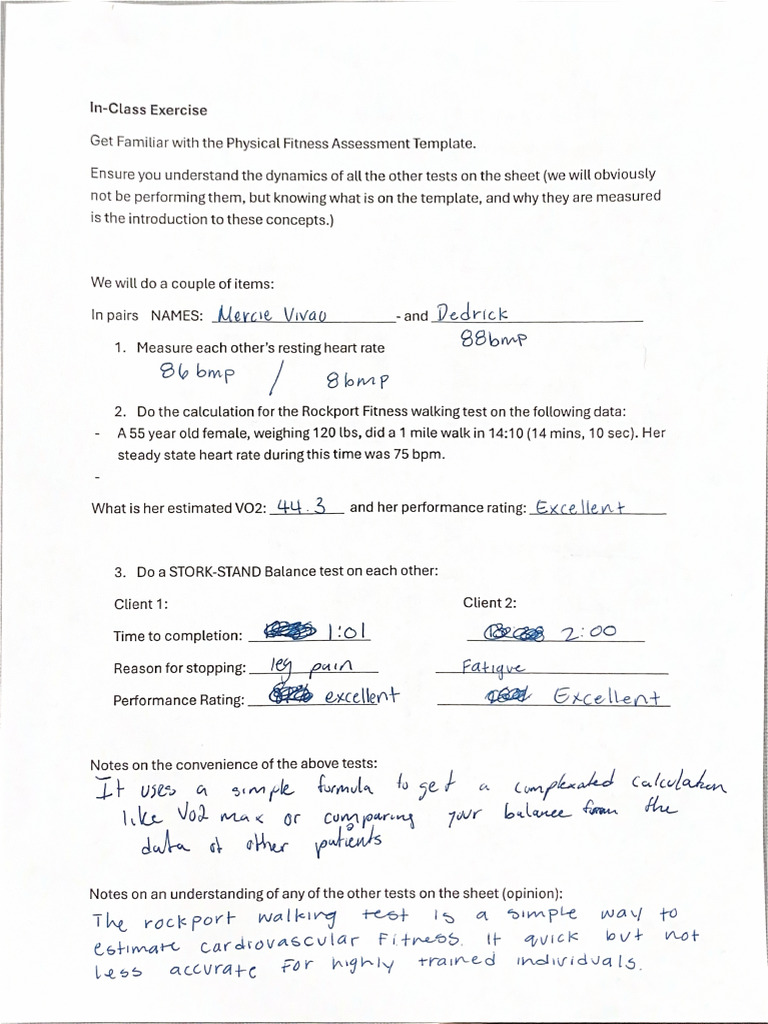 In-Class Exercise
Get Familiar with the Physical Fitness Assessment Template.
Ensure you understand the dynamics of all the other tests on the sheet (we will obviously
not be performing them, but knowing what is on the template, and why they are measured
is the introduction to these concepts.)
We will do a couple of items:
In pairs NAMES: Mercie Vivao - and Dedrick
88bmp
1. Measure each other's resting heart rate
86 bmp / 8bmp
2. Do the calculation for the Rockport Fitness walking test on the following data:
- A 55 year old female, weighing 120 lbs, did a 1 mile walk in 14:10 (14 mins, 10 sec). Her
steady state heart rate during this time was 75 bpm.
-
What is her estimated VO2: 44.3 and her performance rating: Excellent
3. Do a STORK-STAND Balance test on each other:
Client 1: Client 2:
Time to completion: 1:01 2:00
Reason for stopping: leg pain Fatigue
Performance Rating: excellent Excellent
Notes on the convenience of the above tests:
It uses a simple formula to get a complexated calculation
like Vo2 max or comparing your balance from the
data of other patients
Notes on an understanding of any of the other tests on the sheet (opinion):
The rockport walking test is a simple way to
estimate cardiovascular Fitness. It quick but not
less accurate for highly trained individuals.